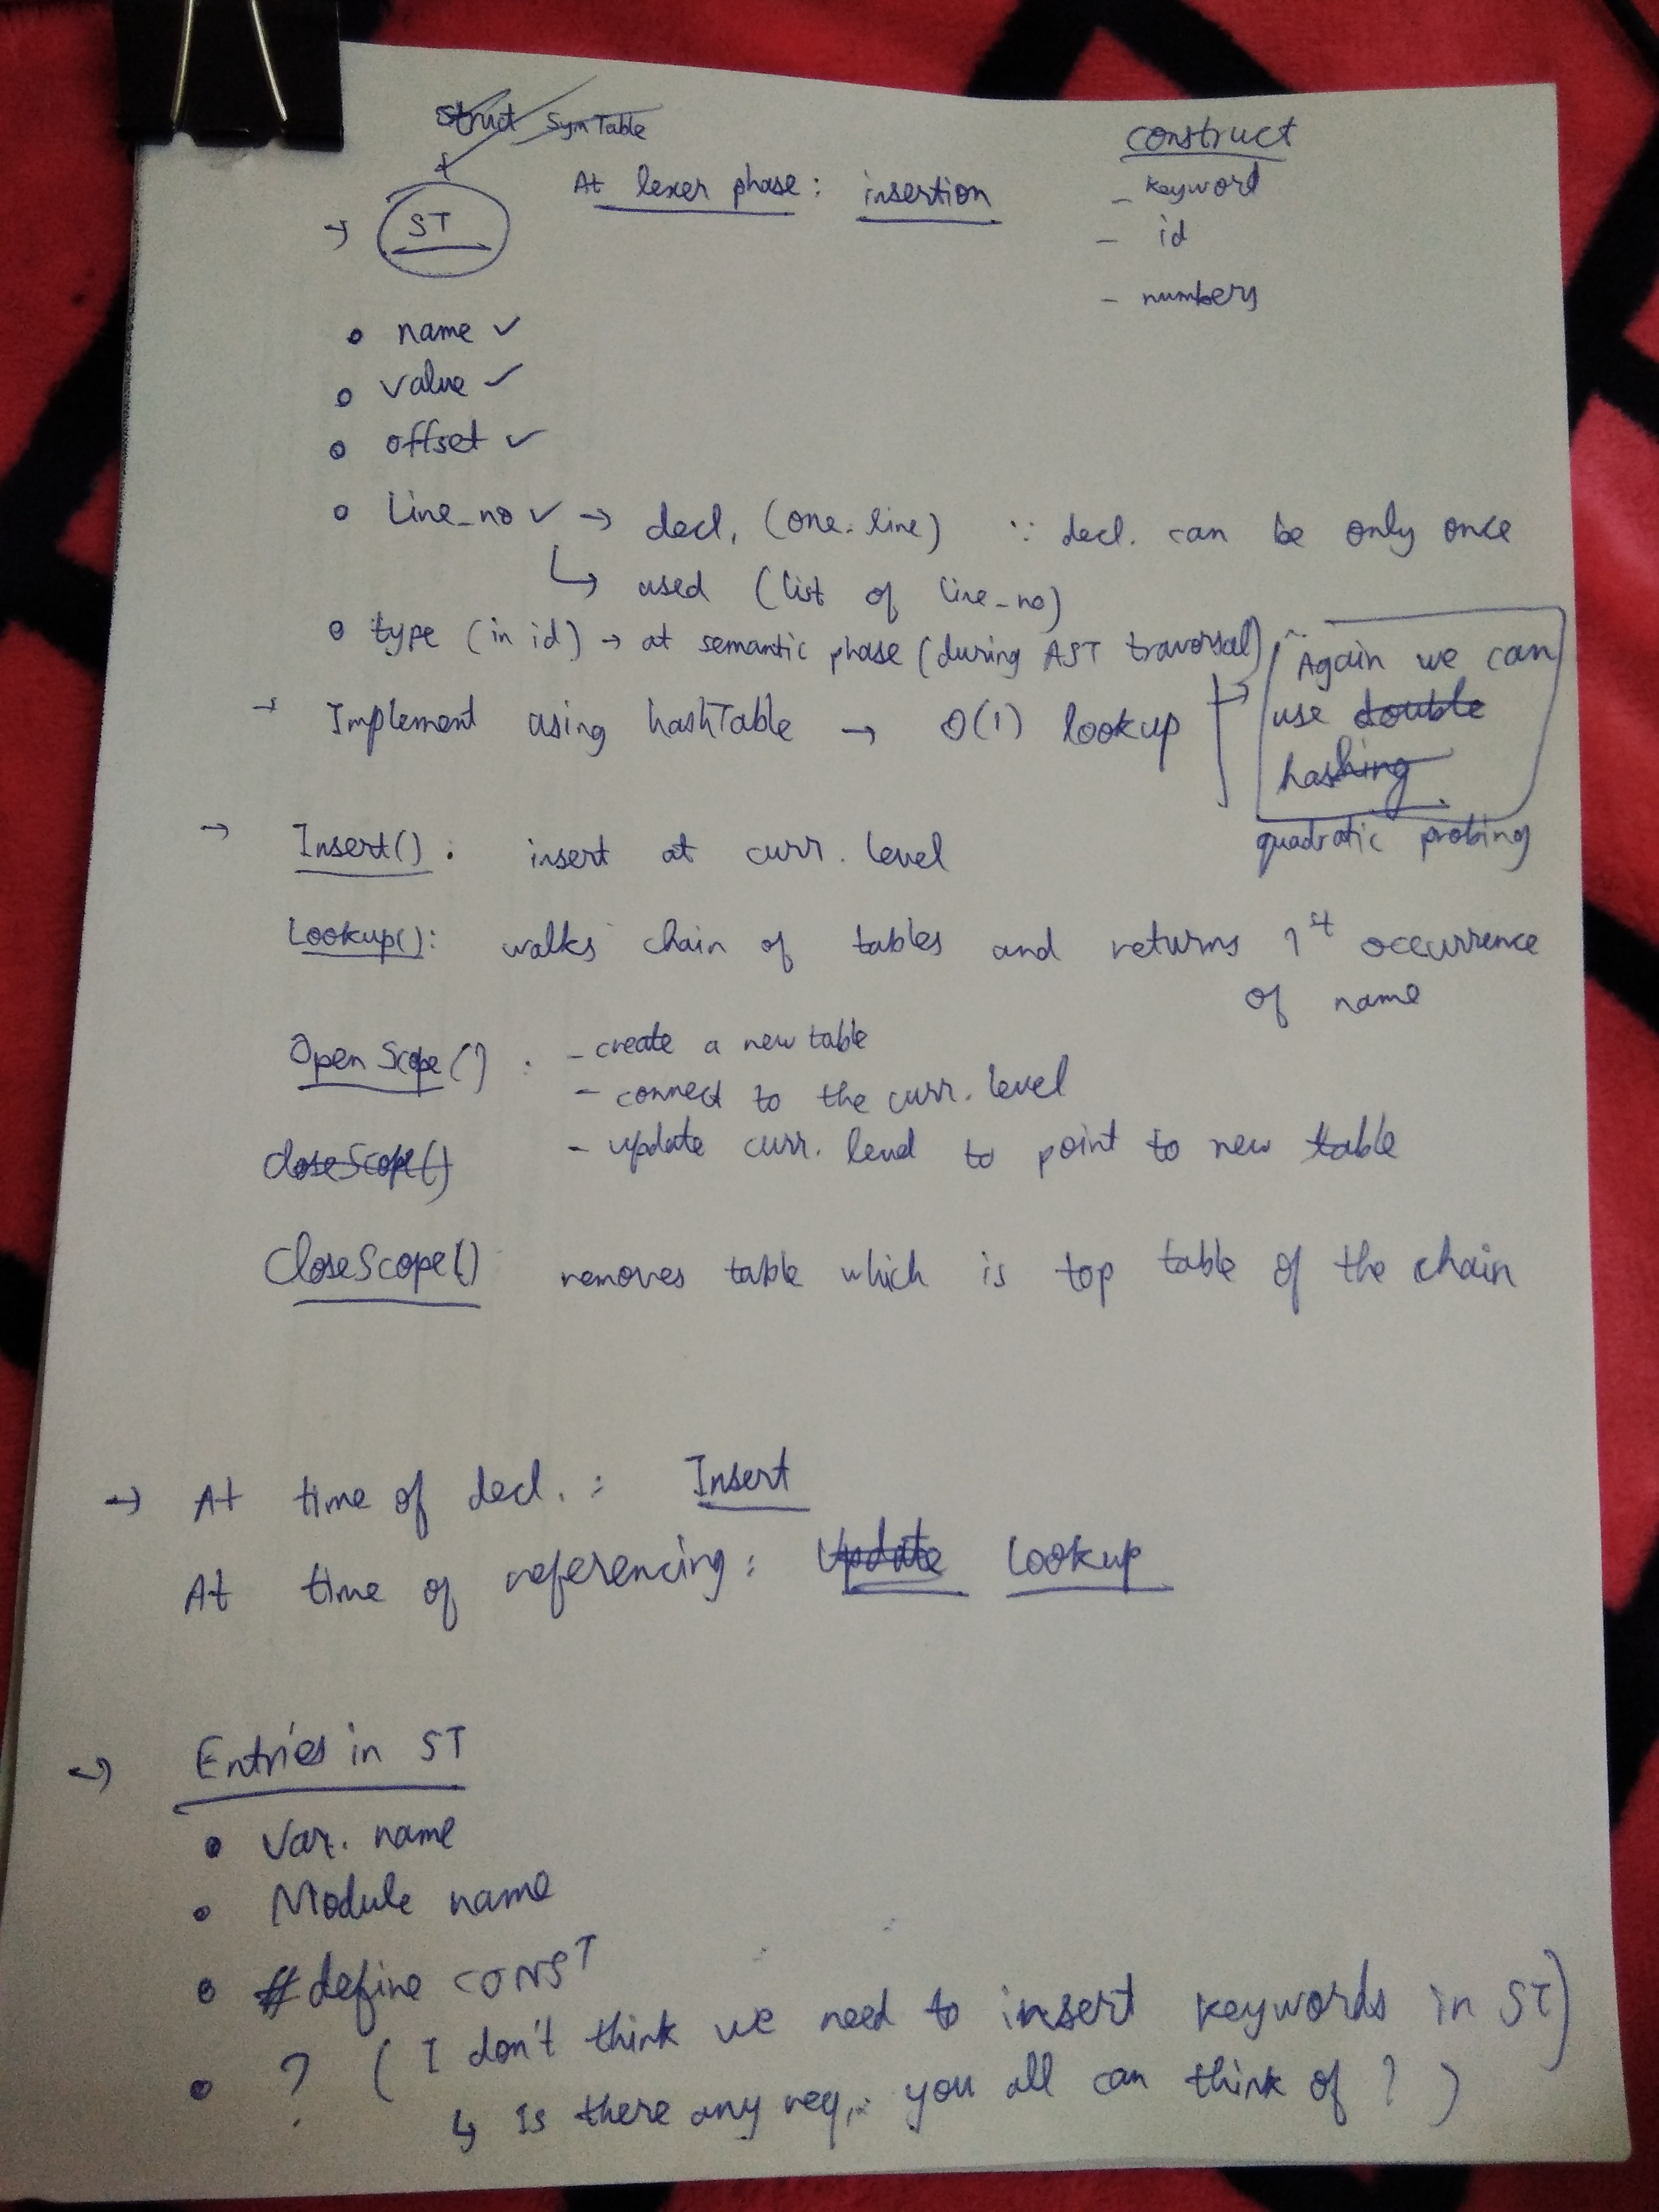 Struct SymTable
construct
At lexer phase: insertion
- keyword
→ ST
- id
- numbers
• name ✓
• value ✓
• offset ✓
• Line_no ✓ → decl. (one line) ∵ decl. can be only once
↳ used (list of line_no)
• type (in id) → at semantic phase (during AST traversal)
→ Implement using hashTable → O(1) lookup
→ Again we can
use double
hashing
quadratic probing
→ Insert(): insert at curr. level
Lookup(): walks chain of tables and returns 1st occurrence
of name
OpenScope(): - create a new table
- connect to the curr. level
- update curr. level to point to new table
closeScope()
CloseScope() removes table which is top table of the chain
→ At time of decl. : Insert
At time of referencing: Update Lookup
→ Entries in ST
• Var. name
• Module name
• #define CONST
• ? (I don't think we need to insert keywords in ST)
↳ Is there any req. you all can think of ? )